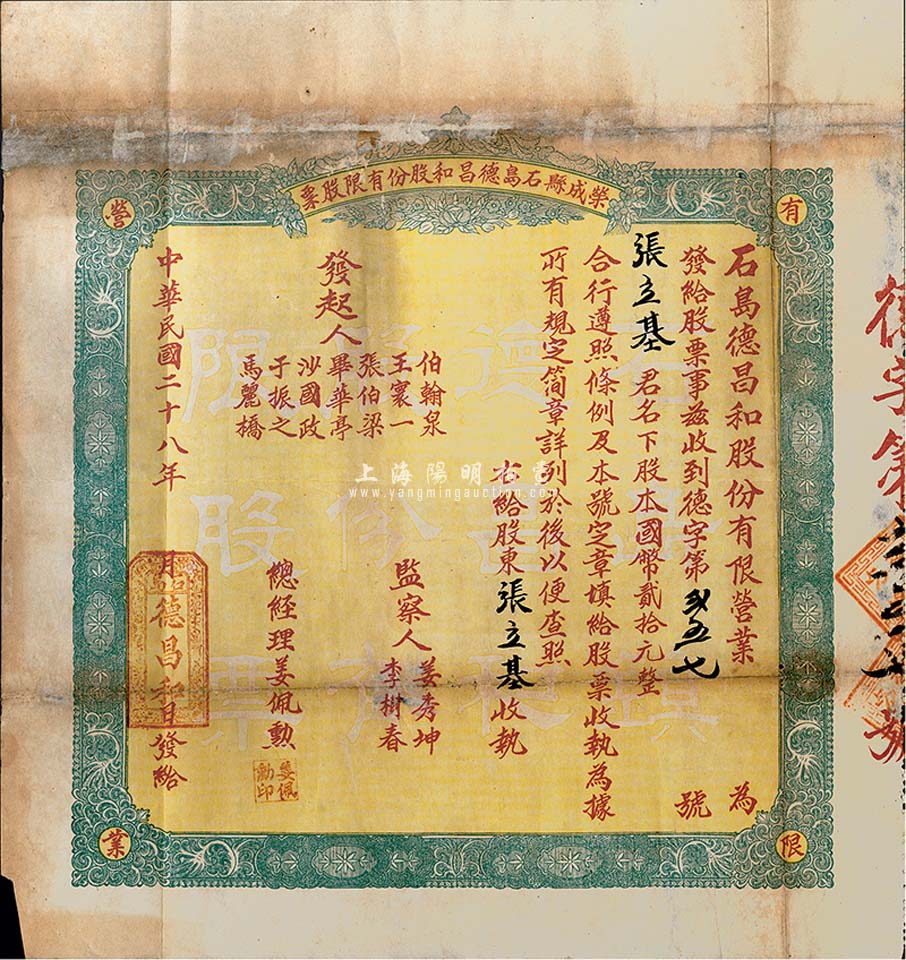 榮成縣石島德昌和股份有限股票
有
限
營
業
石島德昌和股份有限營業 為
發給股票事茲收到德字第 五七 號
張立基 君名下股本國幣貳拾元整
合行遵照條例及本號定章填給股票收執為據
所有規定簡章詳列於後以便查照
右給股東 張立基 收執
發起人
伯翰泉
王寰一
張伯梁
畢華亭
沙國政
于振之
馬麗橋
監察人
姜秀坤
李樹春
總經理姜佩勲
姜佩
勳印
中華民國二十八年 月 日發給
德昌和
德字第
號
上海陽明拍賣
www.yangmingauction.com